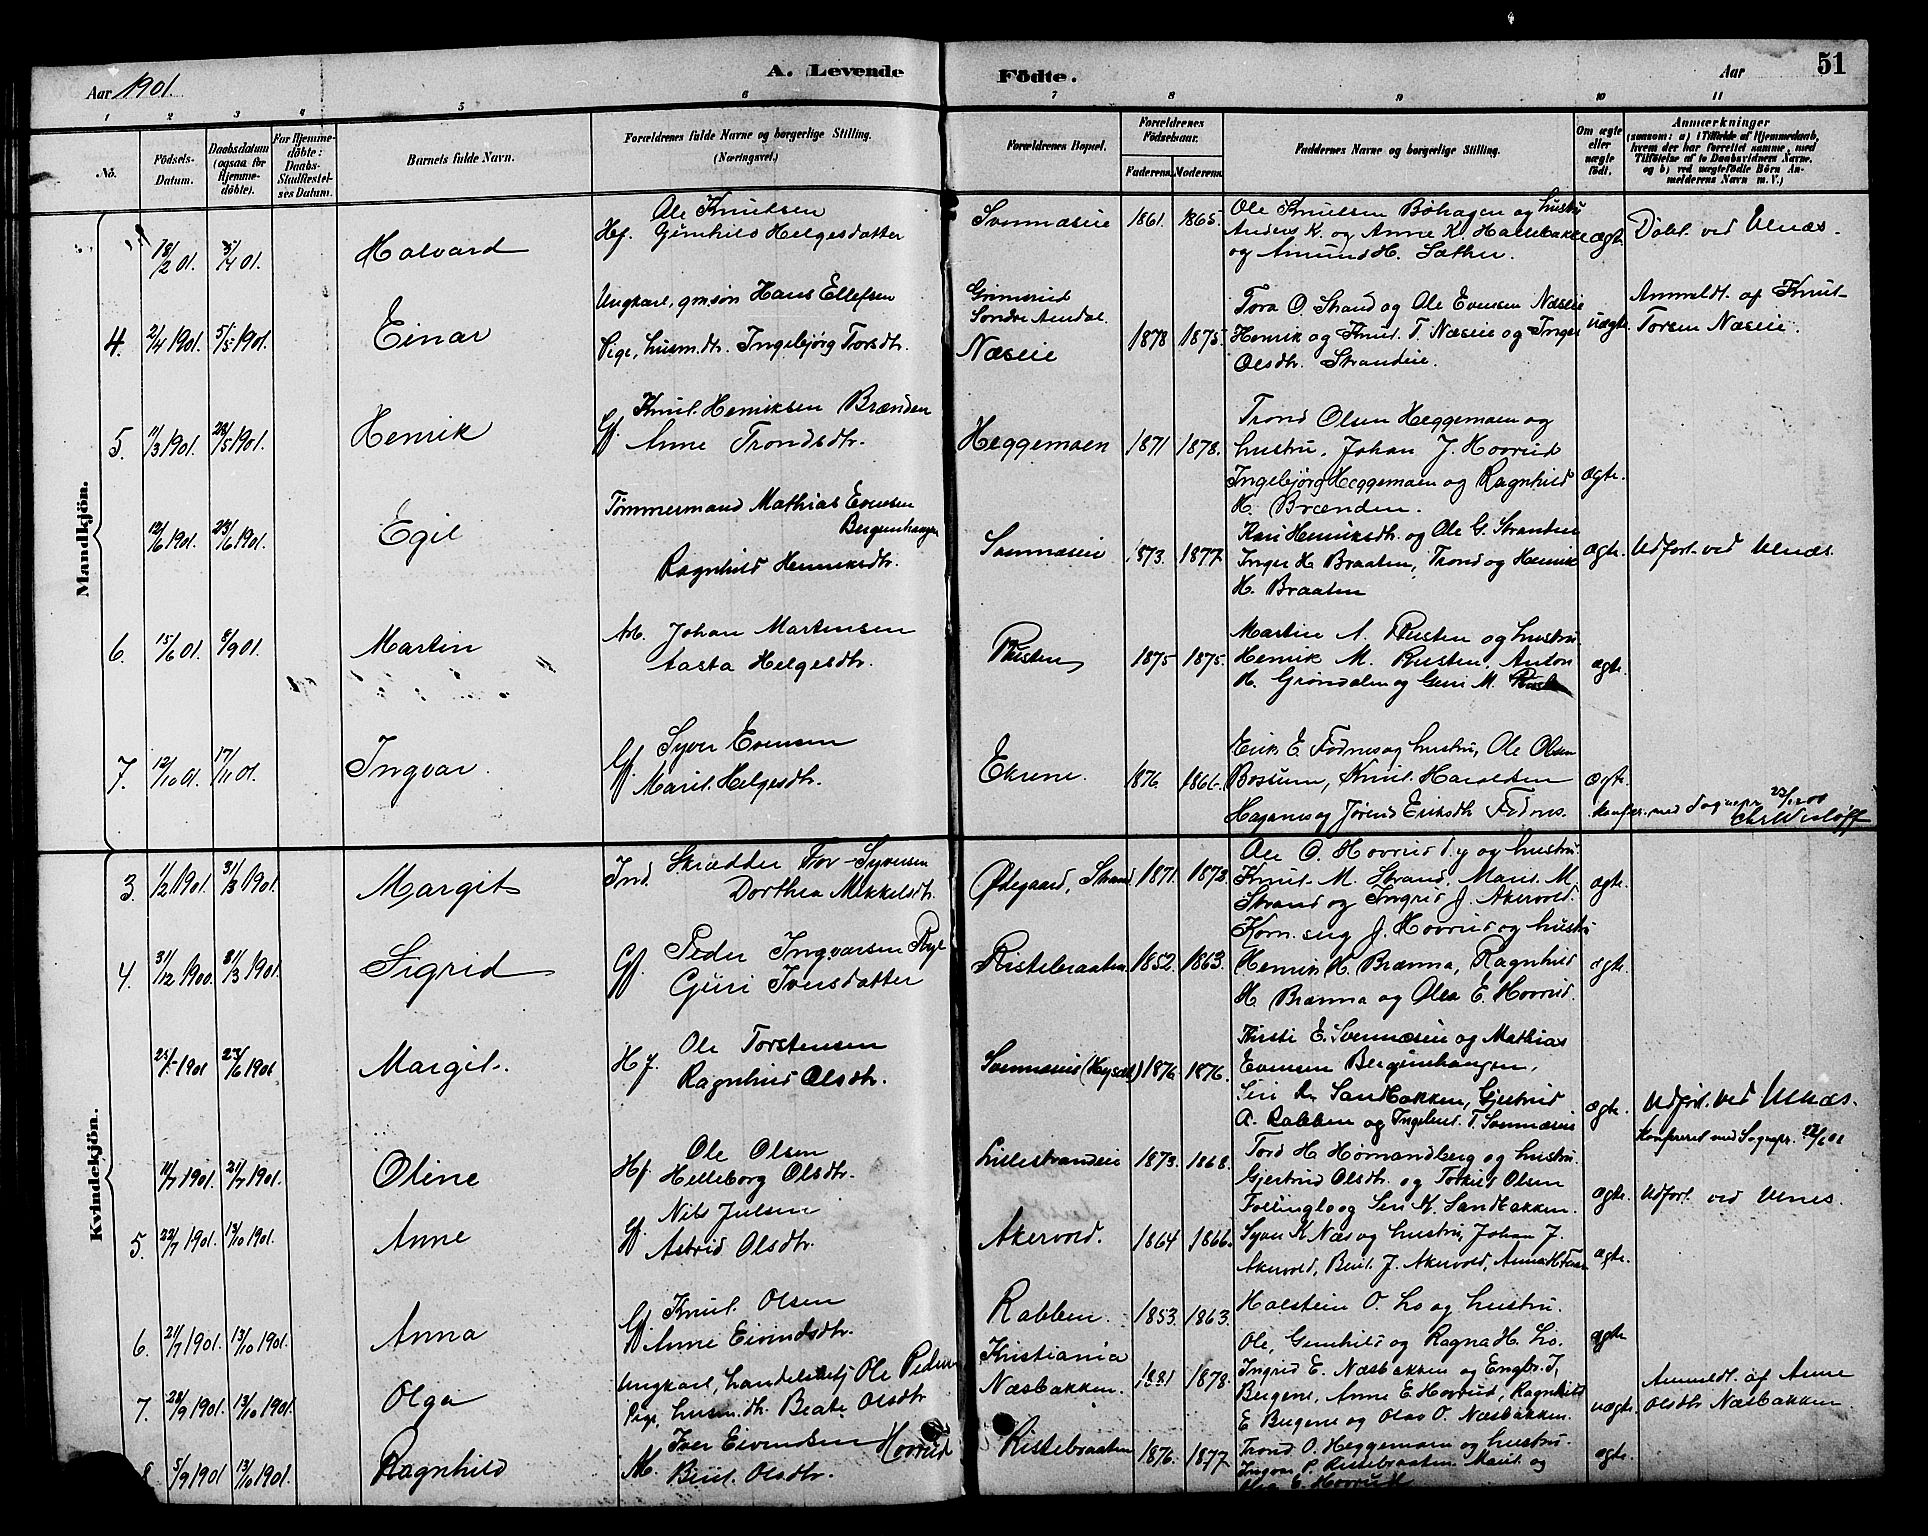 Aar 1901.
A. Levende Födte.
Aar
51
1 2 3 4 5 6 7 8 9 10 11
No.
Födsels-Datum.
Daabsdatum (ogsaa for Hjemme-döbte).
For Hjemme-döbte: Daabs-Stadfæstel-ses Datum.
Barnets fulde Navn.
Forældrenes fulde Navne og borgerlige Stilling. (Næringsvei.)
Forældrenes Bopæl.
Forældrenes Födselsaar.
Faderens. Moderens.
Faddernes Navne og borgerlige Stilling.
Om ægte eller uægte födt.
Anmærkninger
(saasom: a) i Tilfælde af Hjemmedaab, hvem der har forrettet samme, med Tilföielse af to Daabsvidners Navne, og b) ved uægtefödte Börn An-melderens Navn m. V.)
Mandkjön.
18/2 01. 5/4 01.
Halvard
Ole Knutsen
Hf. Gunhild Helgesdatter
1861. 1865.
Ole Knutsen Bøhagen og hustru
Anders K. og Anne K. Hallebakke
og Amund H. Sæther.
ægte
Døbt ved Ulnæs.
4. 2/4 1901. 5/5 1901.
Einar
Ungkarl, gmsøn Hans Ellefsen
Pige, husm.dtr. Ingebjørg Torsdtr.
Grimsrud
Søndre Aurdal.
Næseie
1878 1875.
Tora O. Strand og Ole Evensen Næseie
Henrik og Knut T. Næseie og Inger
Olsdtr. Strandeie.
uægte
Anmeldt af Knut
Torsen Næseie.
5. 11/3 1901. 28/5 1901.
Henrik
Knut Henriksen Brænden
Gf. Anne Trondsdtr.
Heggemoen
1871 1878.
Trond Olsen Heggemoen og
hustru, Johan J. Hovrud
Ingebjørg Heggemoen og Ragnhild
H. Brænden.
ægte.
12/6 1901. 23/6 1901.
Egil
Tømmermand Mathias Evensen
Bergumhaugen
Ragnhild Henriksdtr.
1873. 1877
Kari Henriksdtr. og Ole G. Strandeie
Inger H. Braaten, Trond og Henrik
H. Braaten
ægte.
Udført ved Ulnæs.
6. 15/6 01. 8/9 01.
Martin
Arb. Johan Martinsen
Aasta Helgesdtr.
Rusten
1875 1875.
Martin A. Rusten og hustru
Henrik M. Rusten, Anton
H. Grøndalen og Guri M.
ægte.
7. 12/10 01. 17/11 01.
Ingvar.
Gf. Syver Evensen
Marit Helgesdtr.
Ekrene.
1876. 1866.
Erik E. Fodnes og hustru, Ole Olsen
Bossum, Knut Haraldsen
Haganes og Jørend Eriksdtr. Fodnes.
ægte.
Konfer. med Sognepr.
Kvindekjön.
3. 1/2 1901. 31/3 1901.
Margit
Ind. Skrædder Tor Syversen
Dorthea Mikkelsdtr.
Ødegaard, Strand
1871. 1873.
Ole O. Hovrud d.y. og hustru.
Knut M. Strand, Marit M.
Strand og Ingrid J. Akervold.
ægte.
4. 31/12 1900. 31/3 1901.
Sigrid
Gf. Peder Ingvarsen
Guri Iversdatter
Ristebraaten
1852. 1863.
J. Hovrud og hustru
Henrik H. Brænna, Ragnhild
H. Brænna og Olea E. Hovrud.
ægte.
23/6 1901
Margit.
Hf. Ole Torstensen
Ragnhild Olsdtr.
1876 1876.
Kirsti E. Svennæseie og Mathias
Evensen Bergumhaugen,
Siri Sandbakken, Gjertrud
A. Rabben og T. Svennæseie
ægte.
Udført ved Ulnæs.
Konfereret med Sognepr.
11/7 1901. 21/7 1901.
Oline
Hf. Ole Olsen
Helleborg Olsdtr.
Lillestrandeie
1873. 1868.
Tord H. og hustru.
Gjertrud Olsdtr. og Torkild Olsen
og Siri K. Sandbakken.
ægte.
Udført ved Ulnes.
5. 22/7 1901. 13/10 1901.
Anne
Gf. Nils Julsen
Astrid Olsdtr.
Akervold.
1864 1866.
Syver K. Næs og hustru, Johan J.
Akervold, Berit J. Akervold,
ægte.
6. 21/7 1901. 13/10 1901.
Anna
Gf. Knut Olsen
Anne Eivindsdtr.
Rabben.
1853. 1863.
Halstein O. Lo og hustru.
Ole, Gunhild og Ragna H. Lo.
ægte
7. 28/9 1901. 13/10 1901.
Olga
Ungkarl, handelsbetj Ole Pedersen
Pige, husm.dtr. Beate Olsdtr
Kristiania
Næsbakken.
1881 1878.
Ingrid E. Næsbakken og Engbr. I.
Bergene, Anne E. Hovrud, Ragnhild
E. Bergene og Olav O. Næsbakken.
uægte.
Anmeldt af Anne
Olsdtr Næsbakken
8 5/9 1901 13/10 1901.
Ragnhild
M. Iver Eivindsen Hovrud
Berit Olsdtr.
Ristebraaten
1876. 1877
Trond O. Heggemoen og hustru.
Ingvar P. Ristebraaten, Marit og
E. Hovrud
ægte.